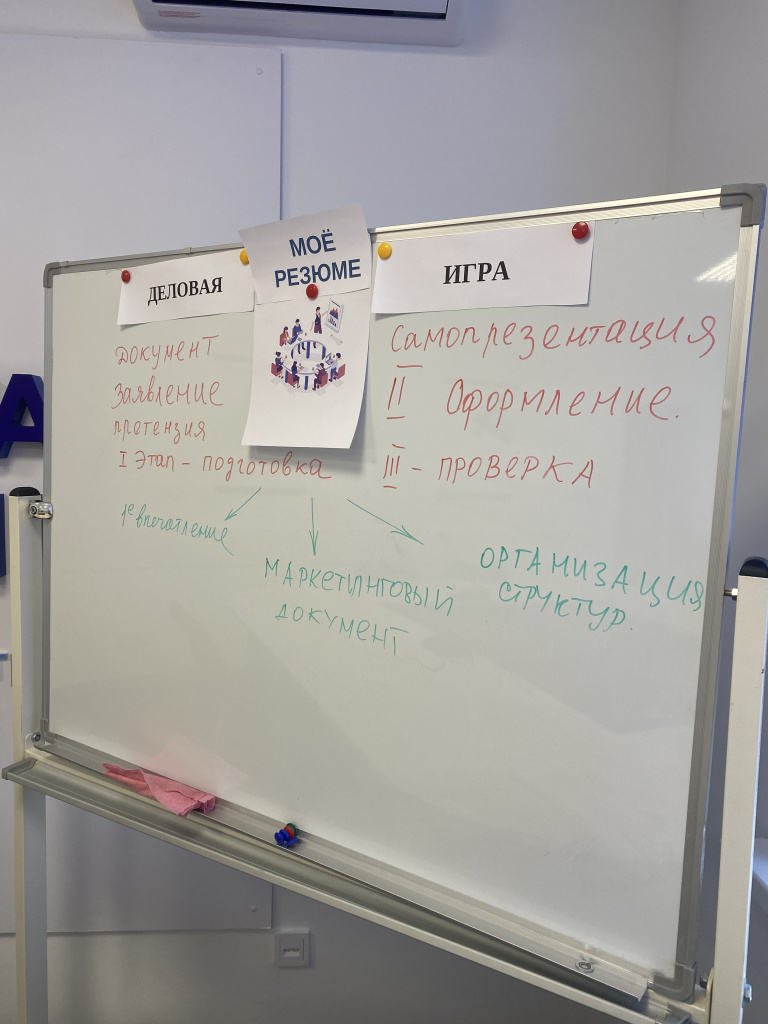 МОЁ
РЕЗЮМЕ
ДЕЛОВАЯ
ИГРА
Документ
Заявление
претензия
I Этап - подготовка
Самопрезентация
II Оформление.
III - ПРОВЕРКА
1е впечатление
МАРКЕТИНГОВЫЙ
ДОКУМЕНТ
ОРГАНИЗАЦИЯ
СТРУКТУР.
А